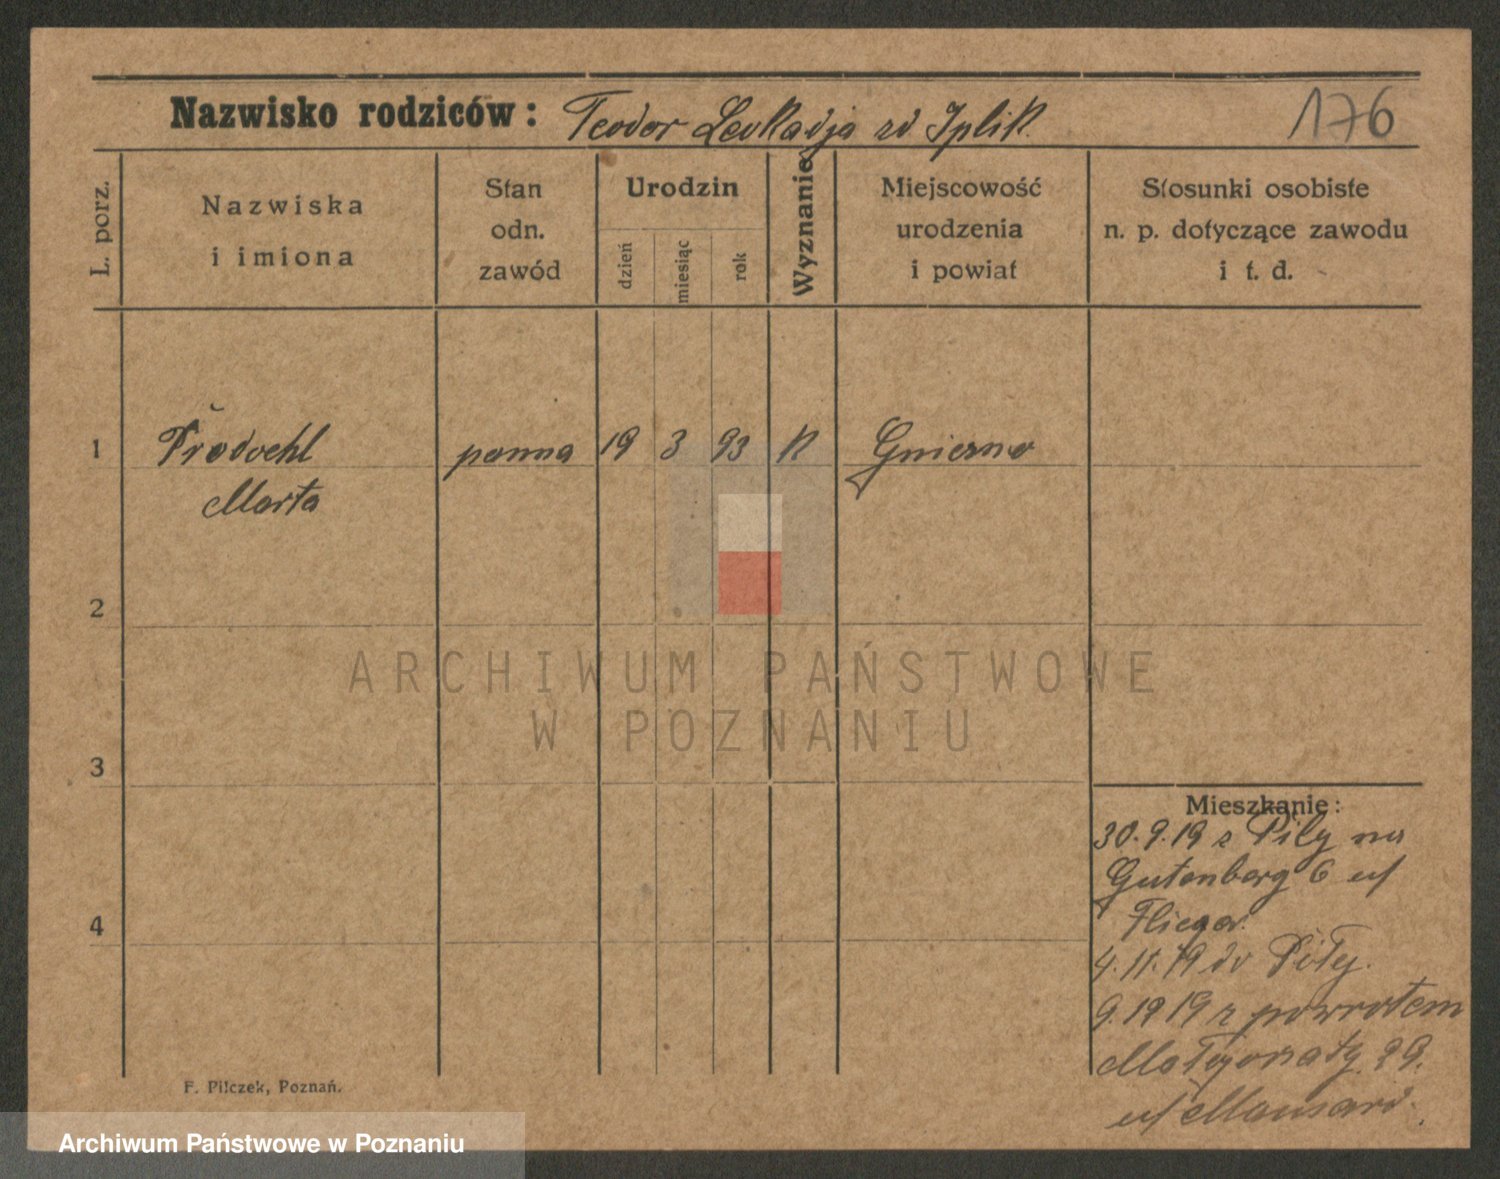 Nazwisko rodziców: Teodor Leokadja zd Iplik
176
L. porz.
Nazwiska
i imiona
Stan
odn.
zawód
Urodzin
dzień
miesiąc
rok
Wyznanie
Miejscowość
urodzenia
i powiat
Stosunki osobiste
n. p. dotyczące zawodu
i t. d.
1
Prodoehl
Marta
panna
19
3
93
K
Gniezno
2
3
4
Mieszkanie:
30.9.19 z Piły na
Gutenberg 6 u/
Flieger
4.11.19 do Piły.
9.12 19 z powrotem
29.
u/
F. Pilczek, Poznań.
ARCHIWUM PAŃSTWOWE
W POZNANIU
Archiwum Państwowe w Poznaniu